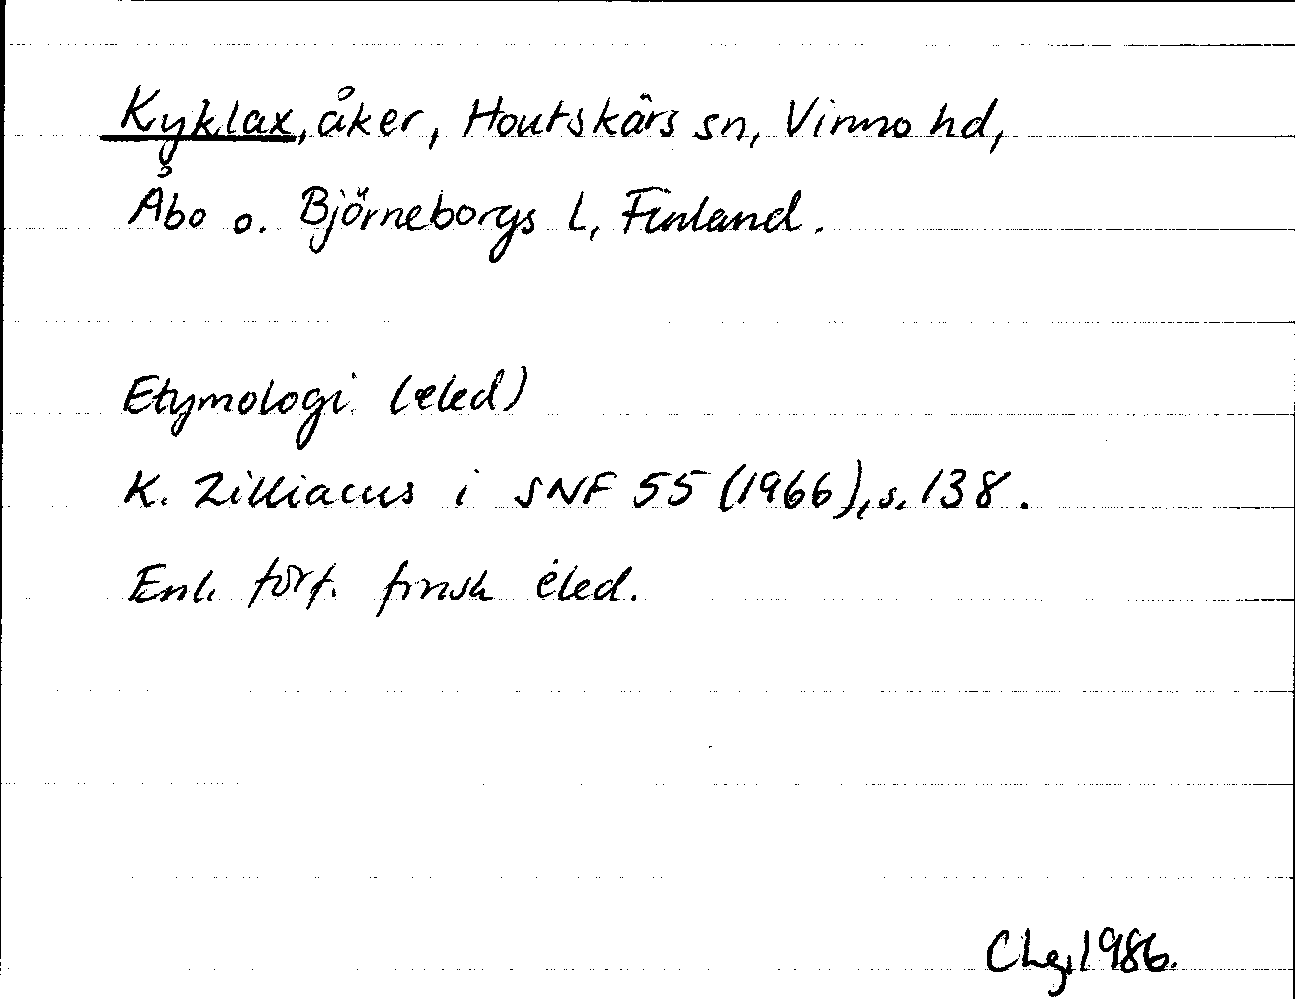 Kyklax, åker, Houtskärs sn, Virmo hd,
Åbo o. Björneborgs l, Finland.
Etymologi (eled)
K. Zilliacus i SNF 55 (1966), s. 138.
Enl. förf. finsk eled.
Chg, 1986.